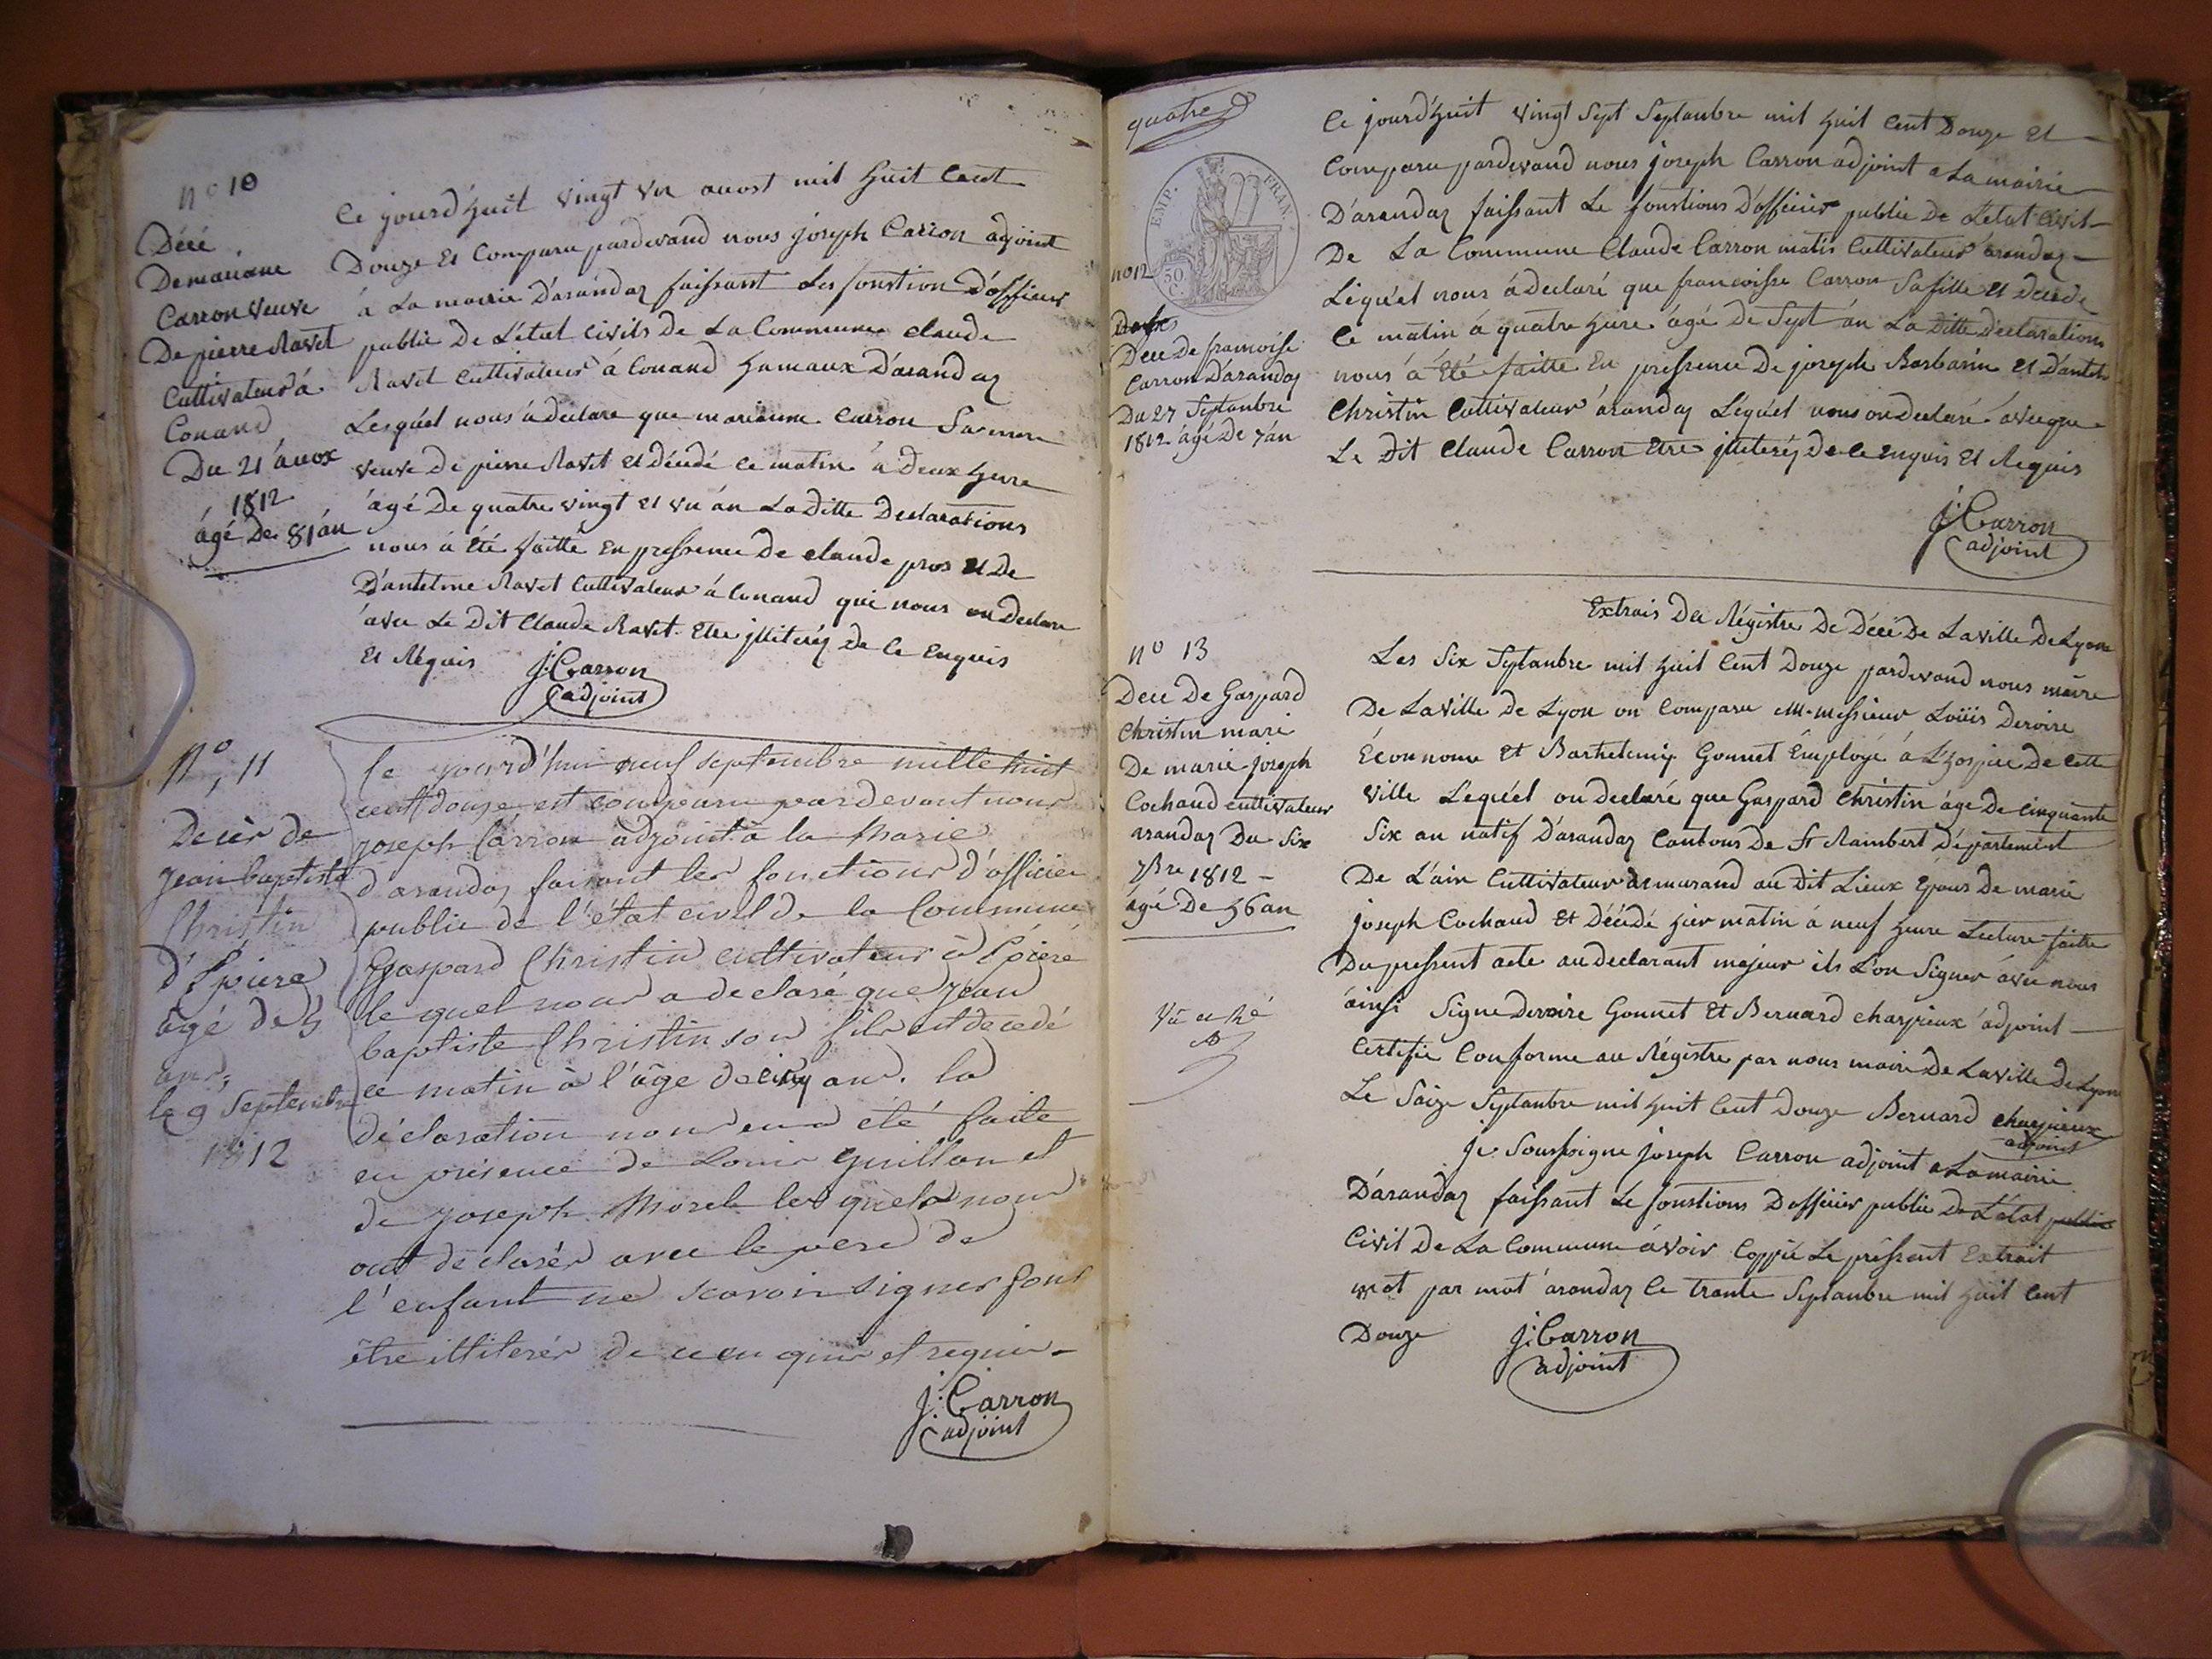 n° 10
Décé
De mariane
Carron veuve
De pierre Ravet
Cultivateur á
Conand
Du 21 auox
1812
ágé De 81 án
Ce jourd'huit vingt un auost mil huit Cent
Douze Et Comparu pardevand nous joseph Carron adjoint
à La mairie D'arandaz faissant Les fonstion D'officier
public De L'état Civils De La Commune claude
Ravet Cultivateur á Conand hamaux D'arandaz
Lesquél nous á declare que marianne Carron Sa mere
veuve De pierre Ravet Et décédé ce matin á Deux heure
ágé De quatre vingt Et un án La Ditte Declarations
nous á été faitte En pressence De claude pros Et De
D'antelme Ravet Cultivateur á Conand qui nous on Declare
avec Le Dit Claude Ravet Etre jlliterés De Ce Enquis
Et Réquis
J: Carron
adjoint
N°, 11
Décès de
Jean baptiste
Christin
d'Epiere
âgé de 5
ans,
le 9 Septembre
1812
Ce jourd'hui neuf septembre mille huit
cent douze est comparu pardevant nous
joseph Carron adjoint à la Marie
d'arandaz, faisant les fonctions d'officier
public de l'état civil de la Commune
Gaspard Christin cultivateur à Epieré
le quel nous a declaré que jean
baptiste Christin son fils est decedé
ce matin à l'âge de cinq ans. la
déclaration nous en a été faite
en présence de Louis Guillon et
de joseph Morel les quels nous
ont déclarés avec le pere de
l'enfant ne scavoir signer pour
être illiterés de ce enquis et requis -
J: Carron
adjoint
quatre
EMP. FRAN.
50
n° 12
Décé De francoise
Carron D'arandaz
Du 27 Septanbre
1812 ágé De 7 án
Ce jourd'huit vingt Sept Septanbre mil huit Cent Douze Et
Comparu pardevand nous joseph Carron adjoint a La mairie
D'arandaz faissant Le fonstions D'officier public De L'etat Civil
De La Commune Claude Carron matis Cultivateur arandaz
Léquél nous á declaré que francoisse Carron Sa fille Et Décédé
Ce matin á quatre hure ágé De Sept án La Ditte Declarations
nous á Eté faitte En pressence De joseph Barbarin Et D'anth
Christin Cultivateur arandaz Léquél nous on declaré avec que
Le Dit Claude Carron Etre jlliteréz De Ce Enquis Et Réquis
J: Carron
adjoint
n° 13
Décé De Gaspard
Christin mari
De marie joseph
Cochaud cultivateur
arandaz Du Six
7bre 1812 -
ágé De 56 an
Extrais Des Régistre De Décé De La ville De Lyon
Les Six Septanbre mil huit Cent Douze pardevand nous maire
De La Ville De Lyon on Comparu M. messieur Loüis Deroire
Économe Et Barthelemy Gonnet Employé á L'hospice De Cette
ville Lequél on declaré que Gaspard Christin áge De Cinquante
Six an natif D'arandaz Cantons De St Rambert Département
De L'ain Cultivateur demurand au Dit Lieux Epoux De marie
joseph Cochaud Et Décédé hier matin á neuf heure Lecture faitte
Du pressent acte au declarant majeur ils L'on Signer avec nous
áinsi Signe Deroire Gonnet Et Bernard Charpieux adjoint
Certifie Conforme au Régistre par nous maire De La ville De Lyon
Le Saize Septanbre mil huit Cent Douze Bernard Charpieux
adjoint
je Soussigne joseph Carron adjoint a La mairie
D'arandaz faissant Le fonstions D'officier public De L'état public
Civil De La Commune ávoir Coppié Le préssent Extrait
mot par mot arandaz Ce trante Septanbre mil huit Cent
Douze
J: Carron
adjoint